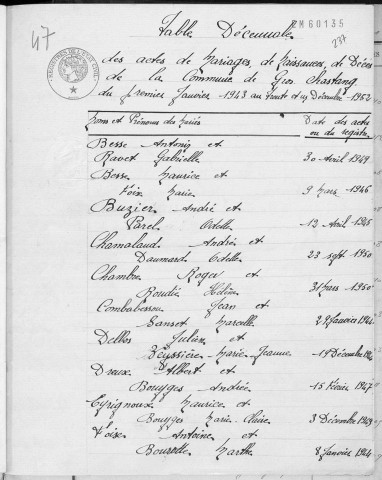 47
2M60135
237
Table Décennale
des actes de Mariages, de Naissances, de Décès
de la Commune de Gros Chastang
du premier Janvier 1943 au trente et un Décembre 1952
Noms et Prénoms des Mariés Date des actes ou du registre
Besse Antonin et
Ravet Gabrielle 30 Avril 1949
Besse Maurice et
Foix Marie 9 Mars 1946
Buzier André et
Parel Odette 12 Avril 1945
Chamalaud André et
Daumard Odette 23 sept 1950
Chambre Roger et
Roudié Hélène 31 Mars 1950
Combabessou Jean et
Sanset Marcelle 29 Janvier 1944
Delbos Julien et
Veyssière Marie Jeanne 19 Décembre
Dreux Albert et
Bouyges Andrée 15 Février 1947
Eyrignoux Maurice et
Bouyges Marie Claire 3 Décembre 1949
Foix Antoine et
Bourette Marthe 8 Janvier 1944